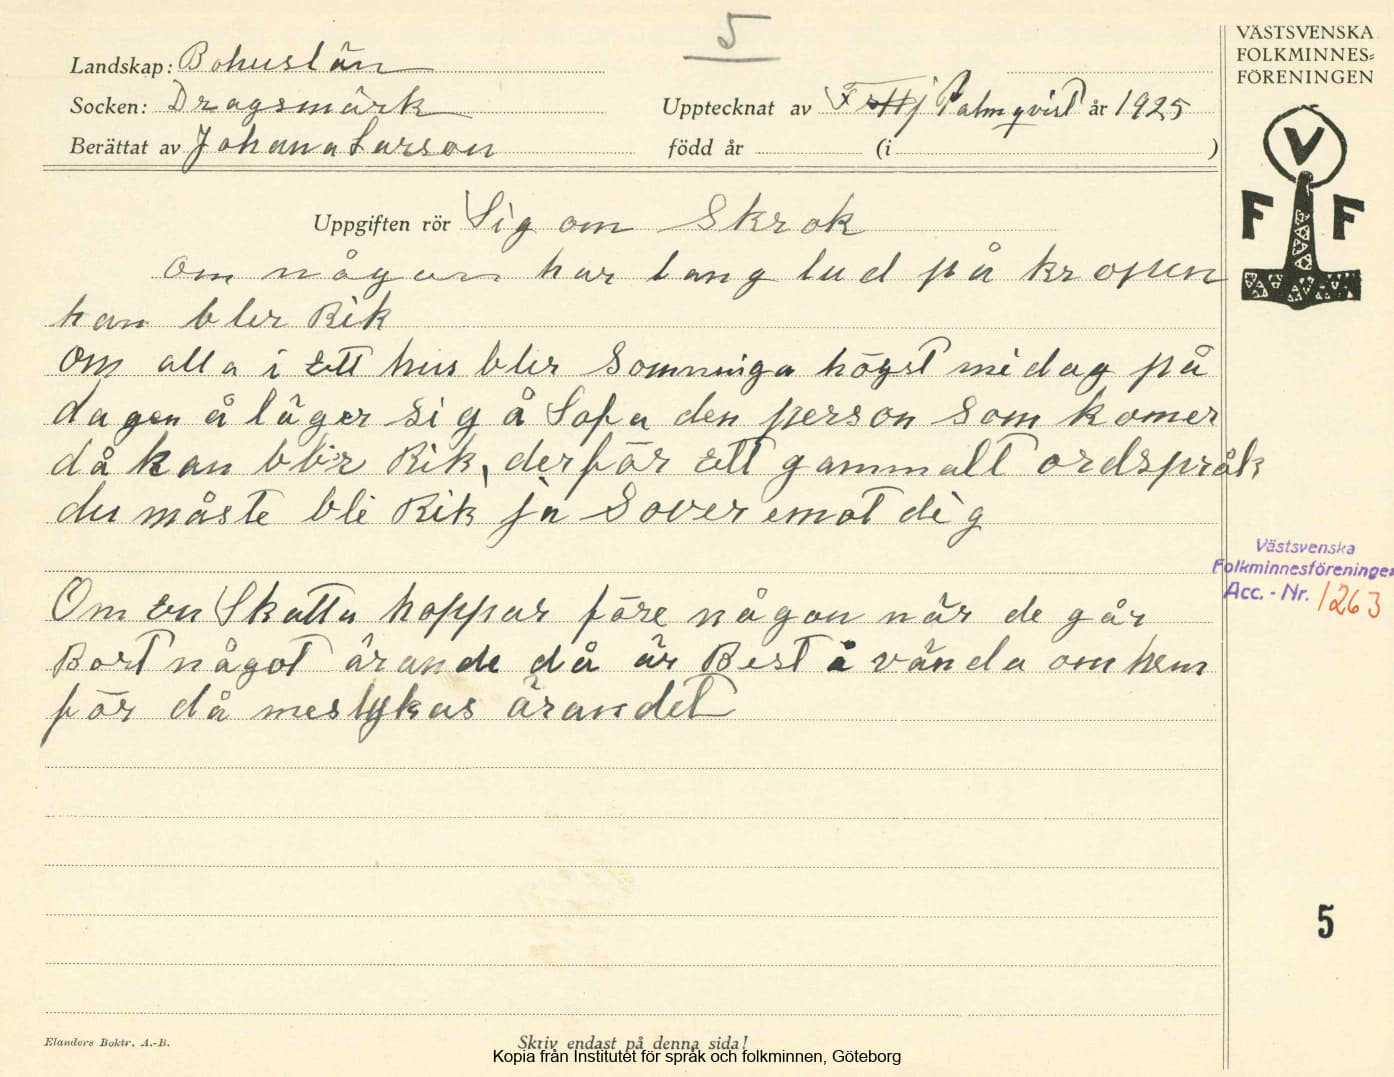 5
VÄSTSVENSKA
FOLKMINNES=
FÖRENINGEN
Landskap: Bohuslän
Socken: Dragsmärk
Upptecknat av Palmqvist år 1925
Berättat av Johana Larson
född år (i )
V
F F
Uppgiften rör Sig om Skrok
om någon har lang lud på kropen
han blir Rik
om alla i Ett hus blir Somniga högst midag på
dagen å läger sig å Sofa den person som komer
då kan blir Rik, derför Ett gammalt ordspråk
du måste bli Rik ja Sover emot dig
Om En Skatta hoppar före någon när de går
Bort något ärande då är Best å vända om hem
för då meslykas ärandet
Västsvenska
Folkminnesföreningen
Acc. - Nr. 1263
5
Elanders Boktr. A.-B.
Skriv endast på denna sida!
Kopia från Institutet för språk och folkminnen, Göteborg